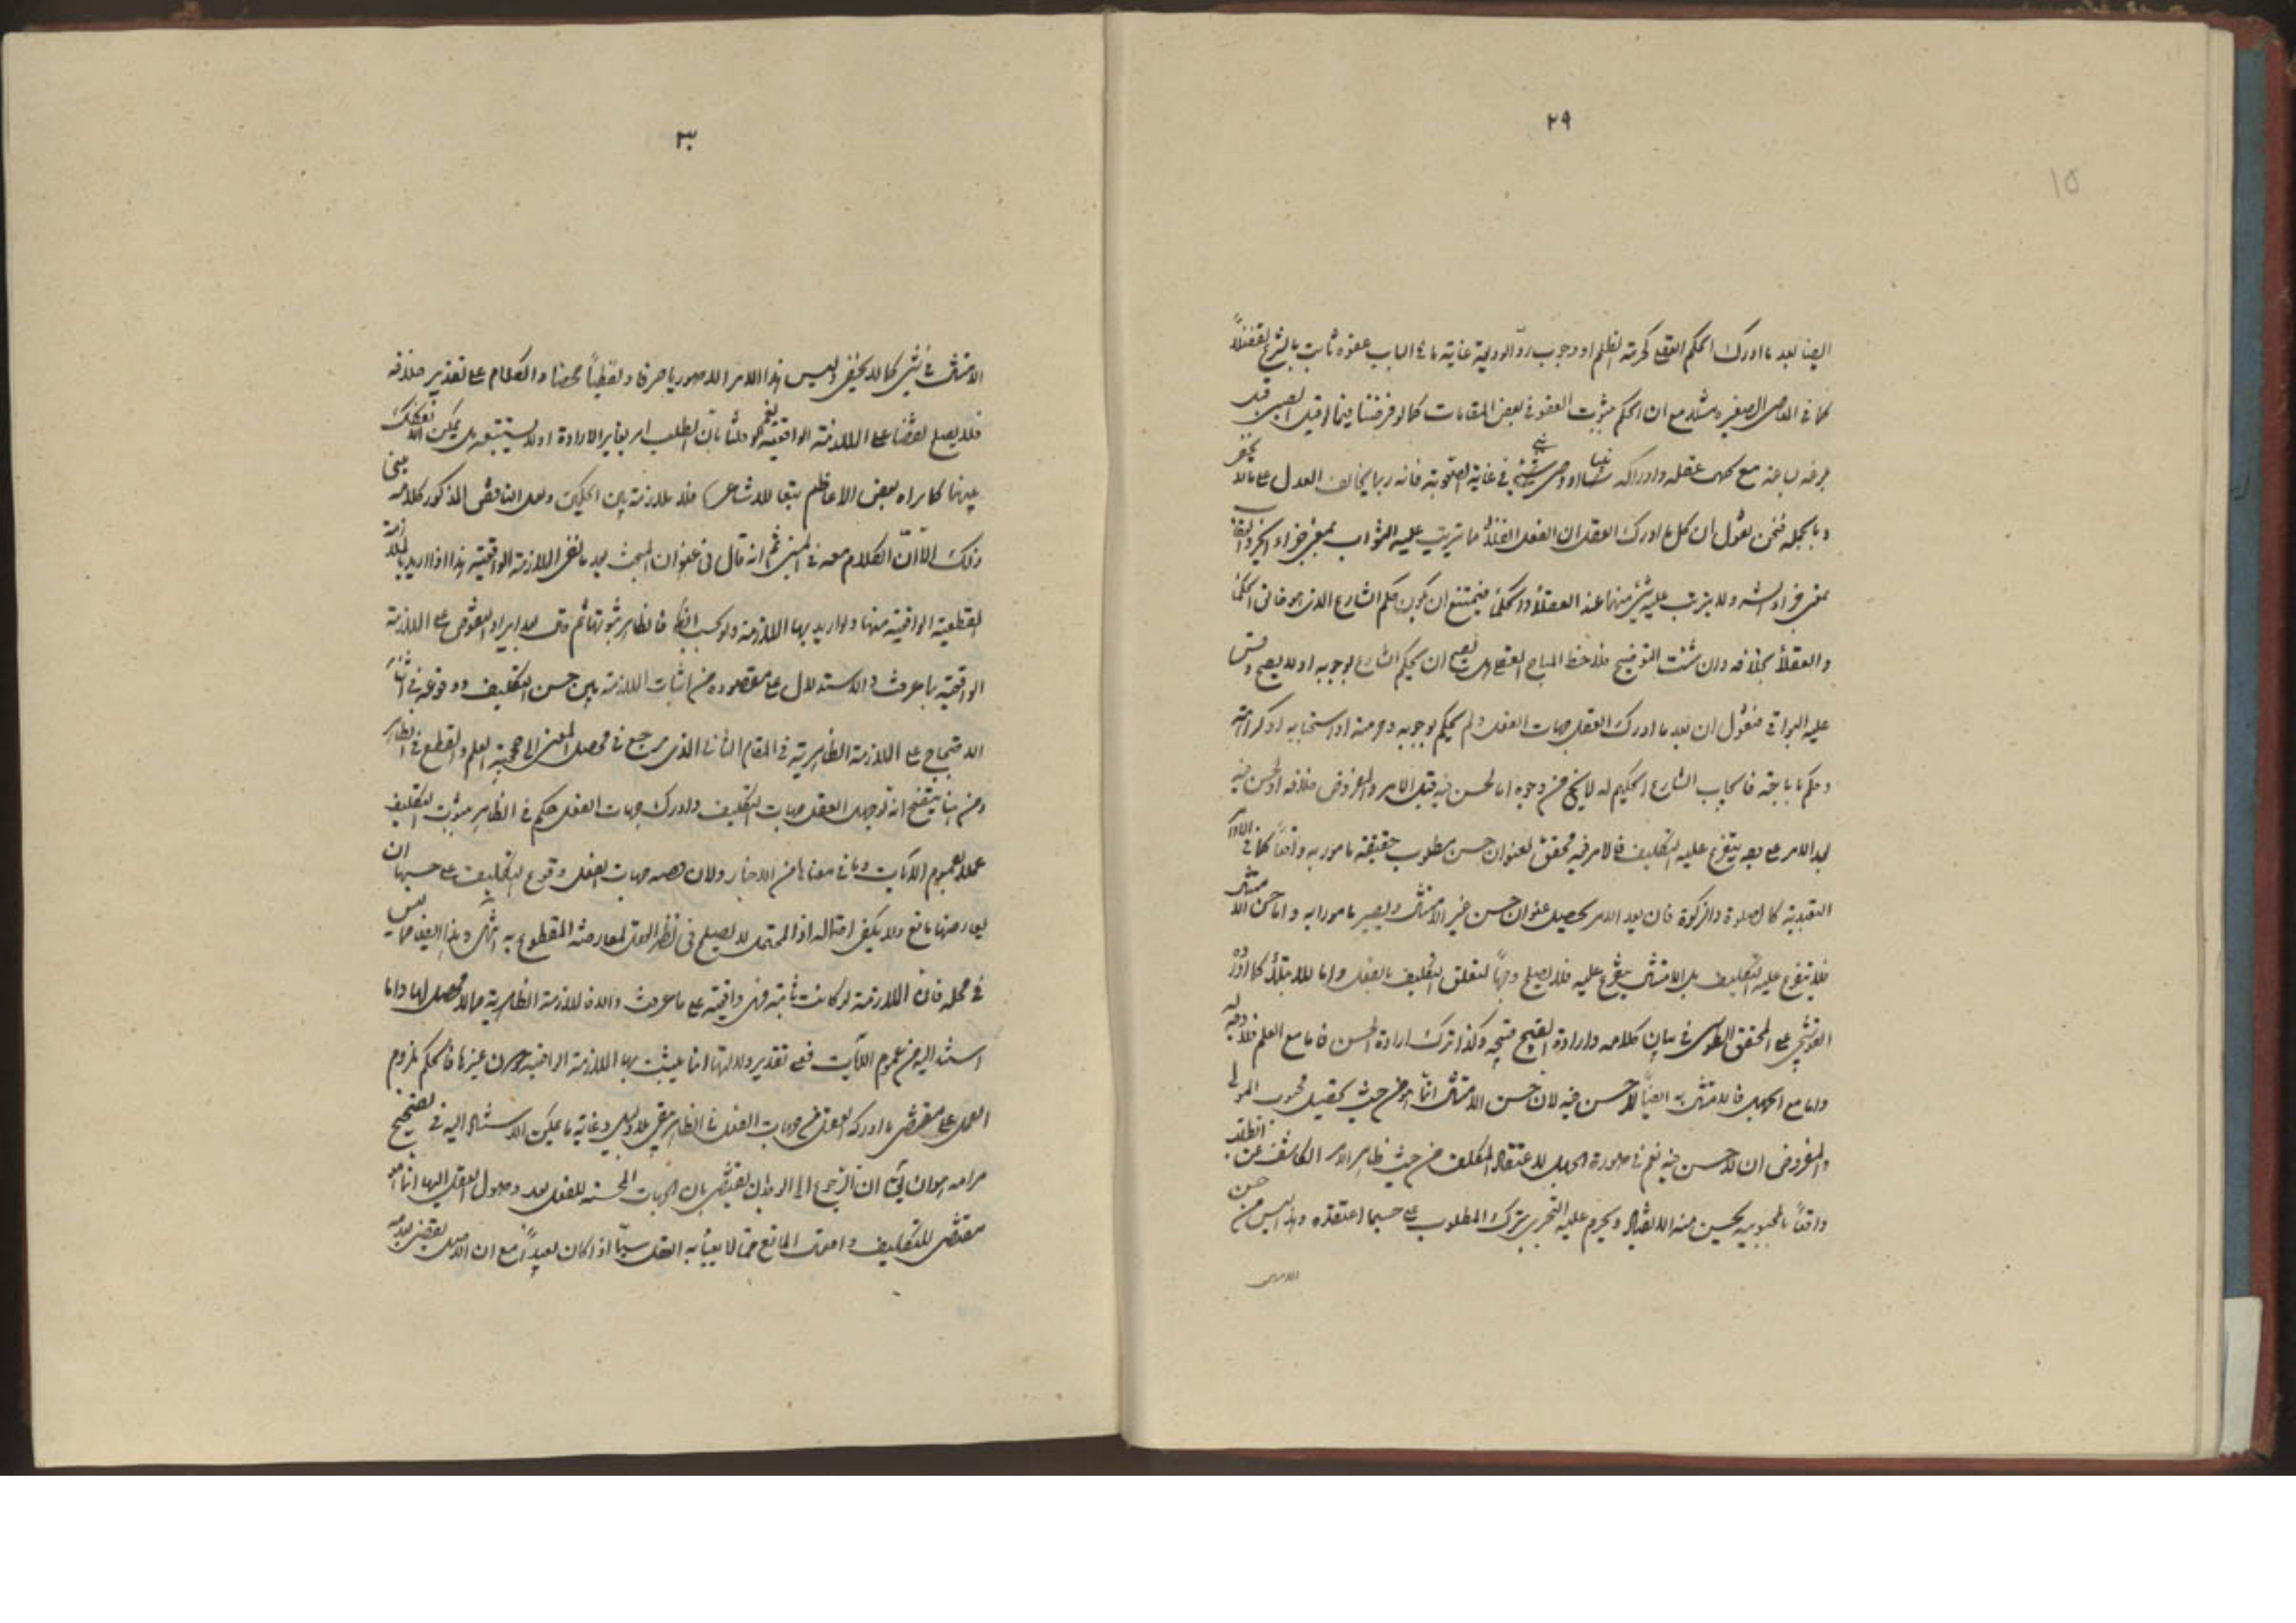 ٢٩
١٥
ايضا بعد ما ادرك الحكم العقلى كحرمة الظلم او وجوب ردّ الوديعة غاية ما فى الباب عفوه ثابت بالشرع تفضلاً
كما فى المعاصى الصغيره مثلا مع ان الحكم بثبوت العفو فى بعض المقامات كما لو فرضنا فيما قبل الصبى قبل
بلوغه بساعة مع كمال عقله وادراكه او وصى فى غاية فانه ربما يخالف العدل على ما لا يخفى
وبالجملة فنحن نقول ان كل ما ادرك العقل ان الفعل الفلانى ما يترتب عليه الثواب بمعنى جزاء الخير والعقاب
بمعنى جزاء الشر ولا يترتب عليه شئ منهما عند العقلاء والحكماء فيمتنع ان يكون حكم الشارع الذى هو خالق الحكماء
والعقلاء بخلافه وان شئت التوضيح فلاحظ المباح العقلى هل يصح ان يحكم الشارع بوجوبه او لا يصح وقس
عليه البواقى فنقول ان بعد ما ادرك العقل جهات الفعل ولم يحكم بوجوبه وحرمته او استحبابه او كراهته
وحكم باباحته فايجاب الشارع الحكيم له لا يخلو من وجوه اما لحسن فيه قبل الامر والمفروض خلافه او لحسن فيه
بعد الامر على وجه يتفرع عليه التكليف فالامر فيه محقق لعنوان حسن مطلوب حقيقة مامور به واقعاً كما فى الاوامر
التعبدية كالصلوة والزكوة فان بعد الامر يحصل عنوان حسن غير الامتثال ويصير مامورا به واما حسن الامتثال
فلا يتفرع عليه التكليف بل الامتثال يتفرع عليه فلا يصلح وجهاً لتعلق التكليف بالفعل واما للابتلاء كما اورده
القوشجى على المحقق الطوسى فى بيان كلامه وارادة القبيح قبيحة وكذا ترك ارادة الحسن فاما مع العلم فلا وجه له
واما مع الجهل فالامتثال به ايضاً لا حسن فيه لان حسن الامتثال انما هو من حيث تحصيل محبوب المولى
والمفروض ان لا حسن فيه نعم فى صورة الجهل لاعتقاد المكلف من حيث ظاهر الامر الكاشف عن الطلب
واقعاً بالمحبوبية يحسن منه الانقياد ويحرم عليه التجرى بترك المطلوب على حسبما اعتقده وهذا ليس من حسن
الامتثال
٣٠
الامتثال فى شئ كما لا يخفى وليس هذا الامر الا صوريا صرفا ولفظياً محضا والكلام على تقدير خلافه
فلا يصلح نقضا على الملازمة الواقعية نعم لو قلنا بان الطلب امر يغاير الارادة او لا يستتبعه بل يمكن التفكيك
بينهما كما يراه بعض الاعاظم تبعا للاشاعرة فلا ملازمة بين الحكمين ولعل الناقض المذكور كلامه مبنى
ذلك الّا انّ الكلام معه فى المبنى ثم انه قال فى عنوان المبحث بعد ما نفى الملازمة الواقعية هذا اذا اريد بالملازمة
القطعية الواقعية منها ولو اريد بها الملازمة ولو بحسب الظاهر فالظاهر ثبوتها ثم قال بعد ايراد النقوض على الملازمة
الواقعية بما عرفت والاستدلال على مقصوده من اثبات الملازمة بين حسن التكليف ووقوعه فى اثناء
الاحتجاج على الملازمة الظاهرية فى المقام الثانى الذى مرجع فى محصل المعنى الى حجية العلم والقطع فى الظاهر
ومن هنا يتضح انه لو جهل العقل جهات التكليف وادرك جهات الفعل حكم فى الظاهر بثبوت التكليف
عملا بعموم الآيات وما فى معناها من الاخبار ولان قضية جهات الفعل وقوع التكليف على حسبها ان
يعارضها مانع ولا يكفى احتماله اذ المحتمل لا يصلح فى نظر العقل لمعارضة المقطوع به انتهى وهذا ايضا مما ليس
فى محله فان الملازمة لو كانت ثابتة فهى واقعية على ما عرفت والا فالملازمة الظاهرية مما لا محصل لها واما
استند اليه من عموم الآيات فعلى تقدير دلالتها انما يثبت بها الملازمة الواقعية دون غيرها فالحكم بلزوم
العمل على مقتضى ما ادركه العقل من جهات الفعل فى الظاهر بقى بلا دليل وغاية ما يمكن الاستناد اليه فى تصحيح
مرامه هو ان يقال ان الرجوع الى الوجدان يقتضى بان الجهات المحسنة للفعل بعد وصول العقل اليها انما هو
مقتضى للتكليف واحتمال المانع مما لا يعبأ به العقل سيمّا اذا كان بعيداً مع ان الاصل يقضى بعدمه